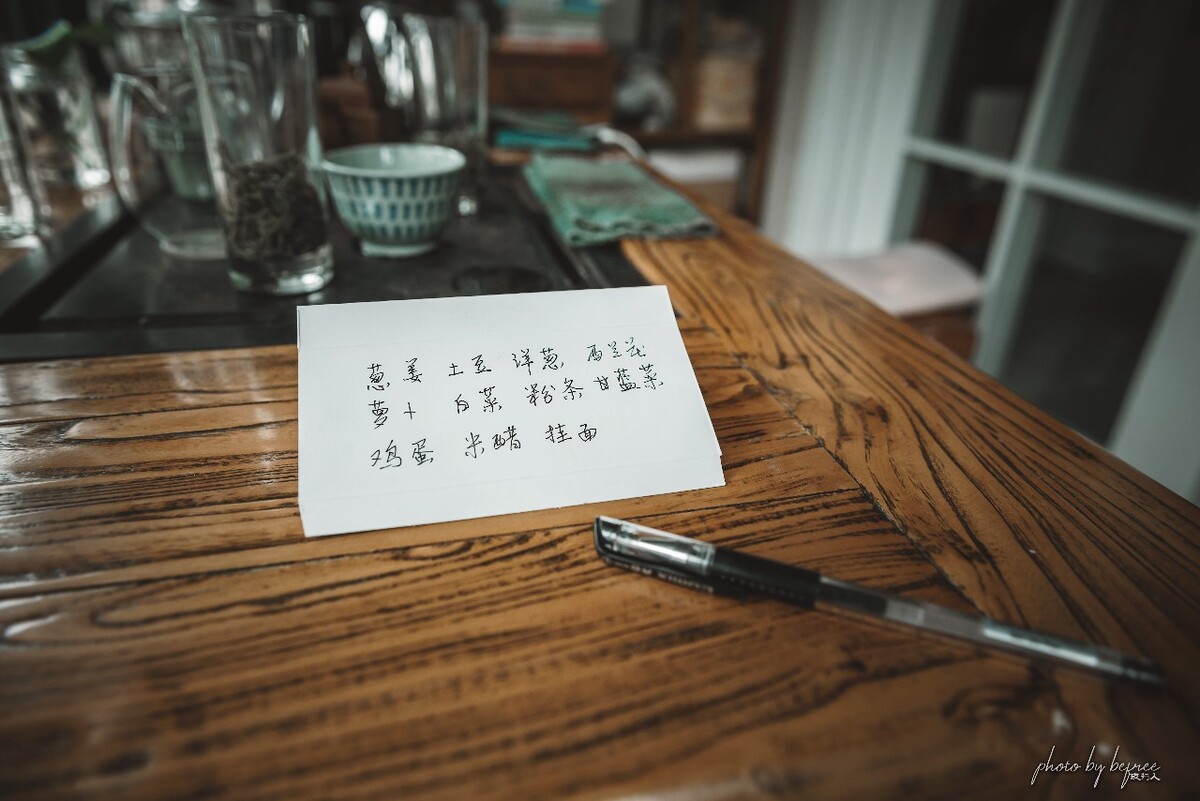 葱 姜 土豆 洋葱, 西兰花
萝卜 白菜 粉条 甘蓝菜
鸡蛋 米醋 挂面
photo by befree